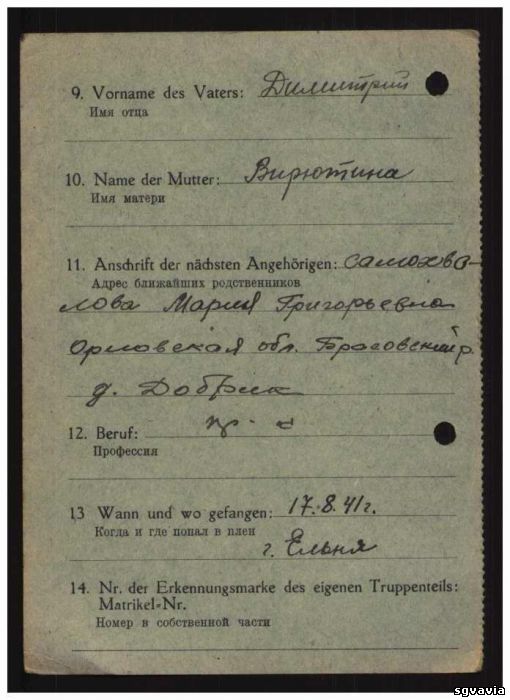 9. Vorname des Vaters: Димитрий
Имя отца
10. Name der Mutter: Вирютина
Имя матери
11. Anschrift der nächsten Angehörigen: Самохва-
Адрес ближайших родственников
лова Мария Григорьевна
Орловская обл. Брасовский р.
д. Добрик
12. Beruf:
Профессия
13 Wann und wo gefangen: 17.8.41г.
Когда и где попал в плен
г. Ельня
14. Nr. der Erkennungsmarke des eigenen Truppenteils:
Matrikel-Nr.
Номер в собственной части
sgvavia